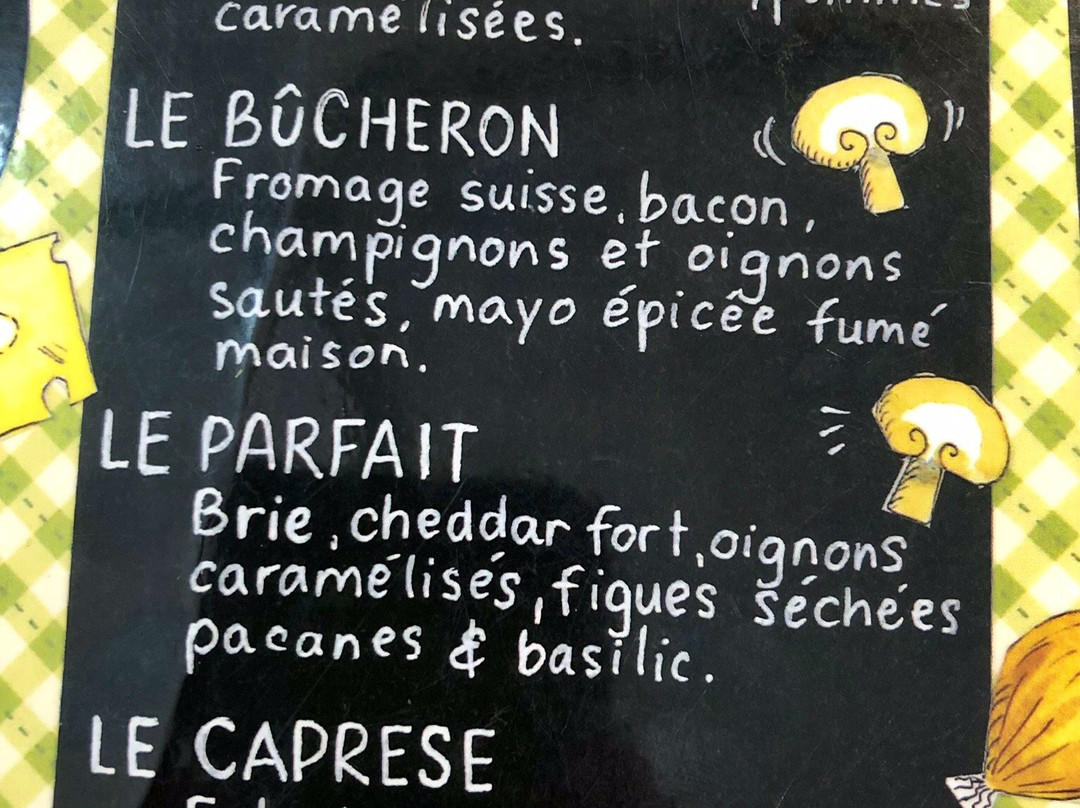 caramélisées.
LE BÛCHERON
Fromage suisse, bacon,
champignons et oignons
sautés, mayo épicêe fumé
maison.
LE PARFAIT
Brie, cheddar fort, oignons
caramélisés, figues séchées
pacanes & basilic.
LE CAPRESE